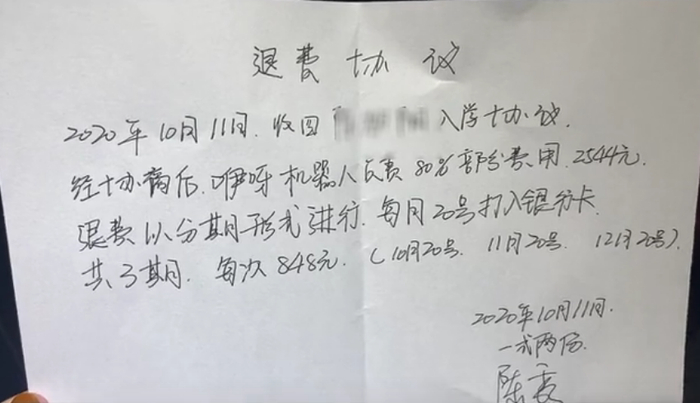 退费协议
2020年10月11日.收回 入学协议.
经协商后.咿呀机器人民费80%部分费用.2544元.
退费以分期形式进行.每月20号打入银行卡.
共3期.每次848元.(10月20号. 11月20号. 12月20号).
2020年10月11日.
一式两份.
陈